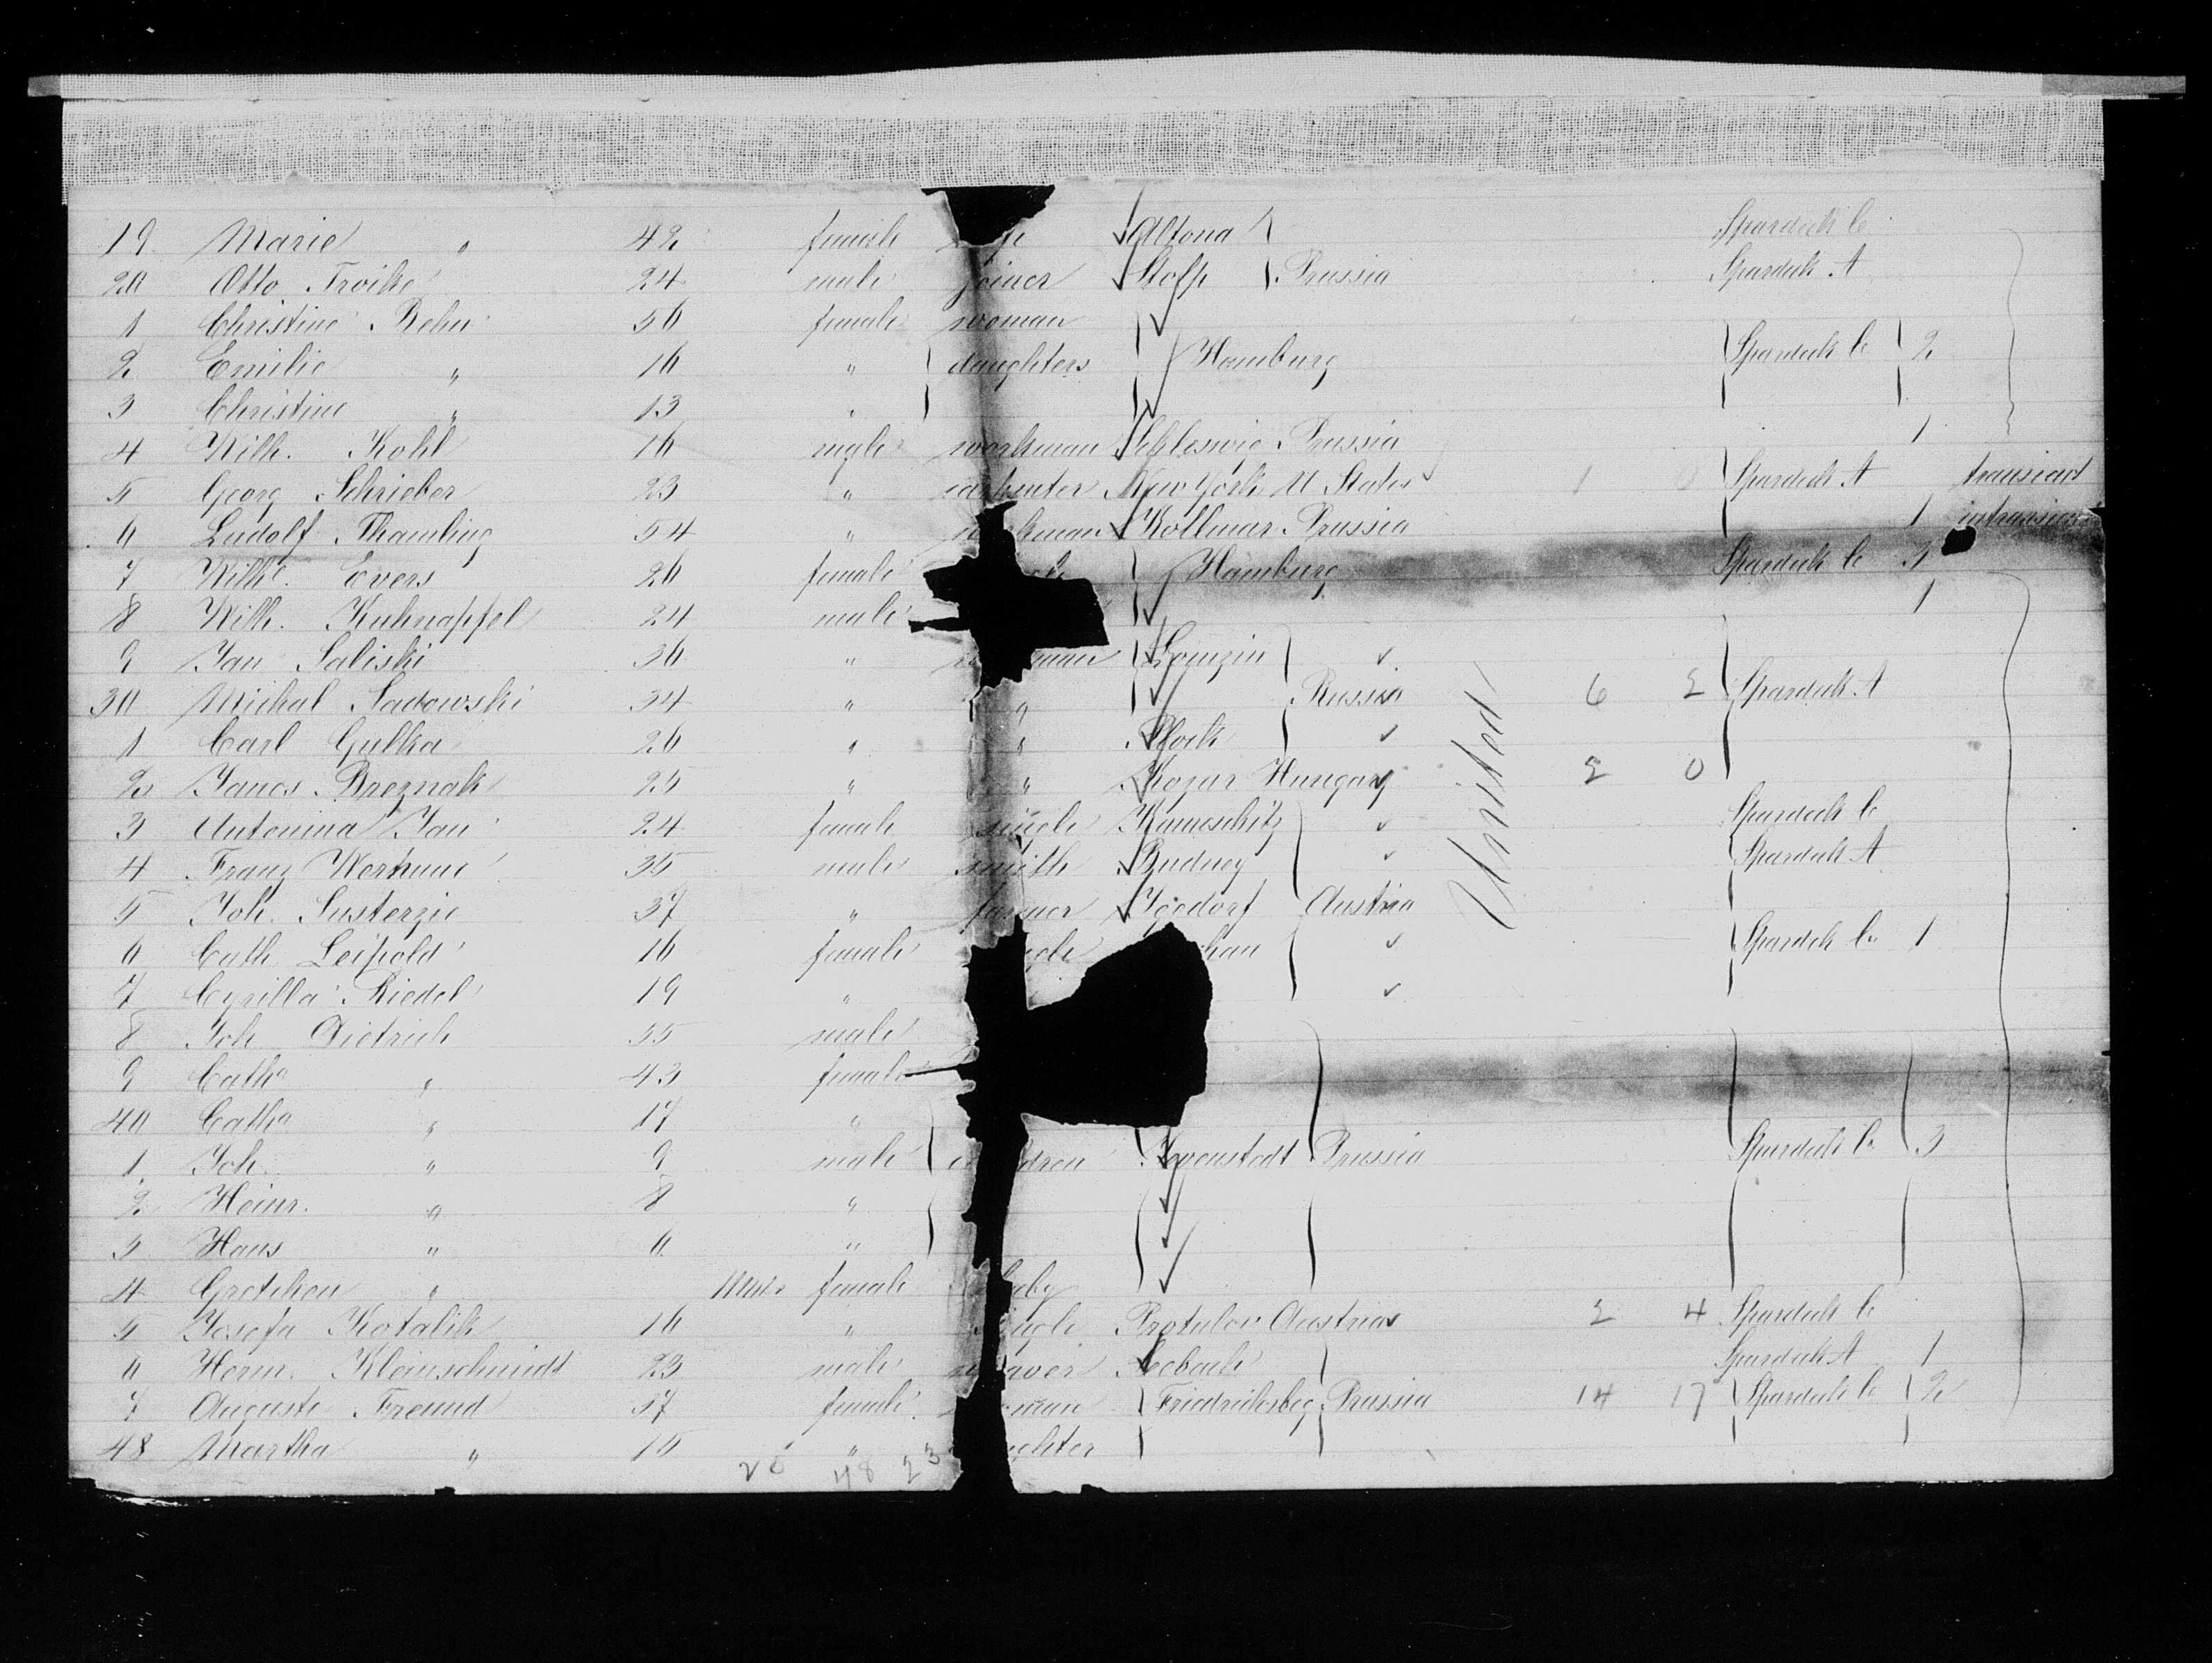 19 Marie " 42 female Altona Spardeck C.
20 Otto Troike 24 male joiner Stolp Prussia Spardeck A
1 Christine Behn 56 female woman
2 Emilie " 16 " daughters Hamburg Spardeck C 2
3 Christine " 13 "
4 Wilh. Kohl 16 male workman Schleswig Prussia 1
5 Georg Schrieber 23 " carpenter New York U States 1 0 Spardeck A transient
6 Ludolf Thamling 54 " Kollmar Prussia 1
7 Wilhe. Evers 26 female Hamburg Spardeck C
8 Wilh. Kuhnapfel 24 male 1
9 Jan Saliski 36 " man Lomzin
30 Michal Sadowski 34 " " Russia 6 2 Spardeck A
1 Carl Gulka 26 " " Plock
2 Janos Breznak 25 " " Kozar Hungary 2 0
United
3 Antonina Jan 24 female single Spardeck C
4 Franz 35 male smith Spardeck A
5 Joh. Susterzic 37 " farmer Austria
6 Cath Leipold 16 female gle Spardeck C. 1
7 Cyrilla Riedel 19 "
8 Joh Dietrich 55 male
9 Catha " 43 female
40 Catha " 17 "
1 Joh. " 9 male dren Prussia Spardeck C. 3
2 Heinr. " 8 "
3 Hans " 6 "
4 Gretchen " female aby
5 Josefa Kotalik 16 " ngle Austria 2 4 Spardeck C
6 Herm. Kleinschmidt 23 male Spardeck A 1
7 Auguste Freund 37 female oman Friedrichsbeg Prussia 14 17 Spardeck C 2
48 Martha " 15 " ghter
25 48 23